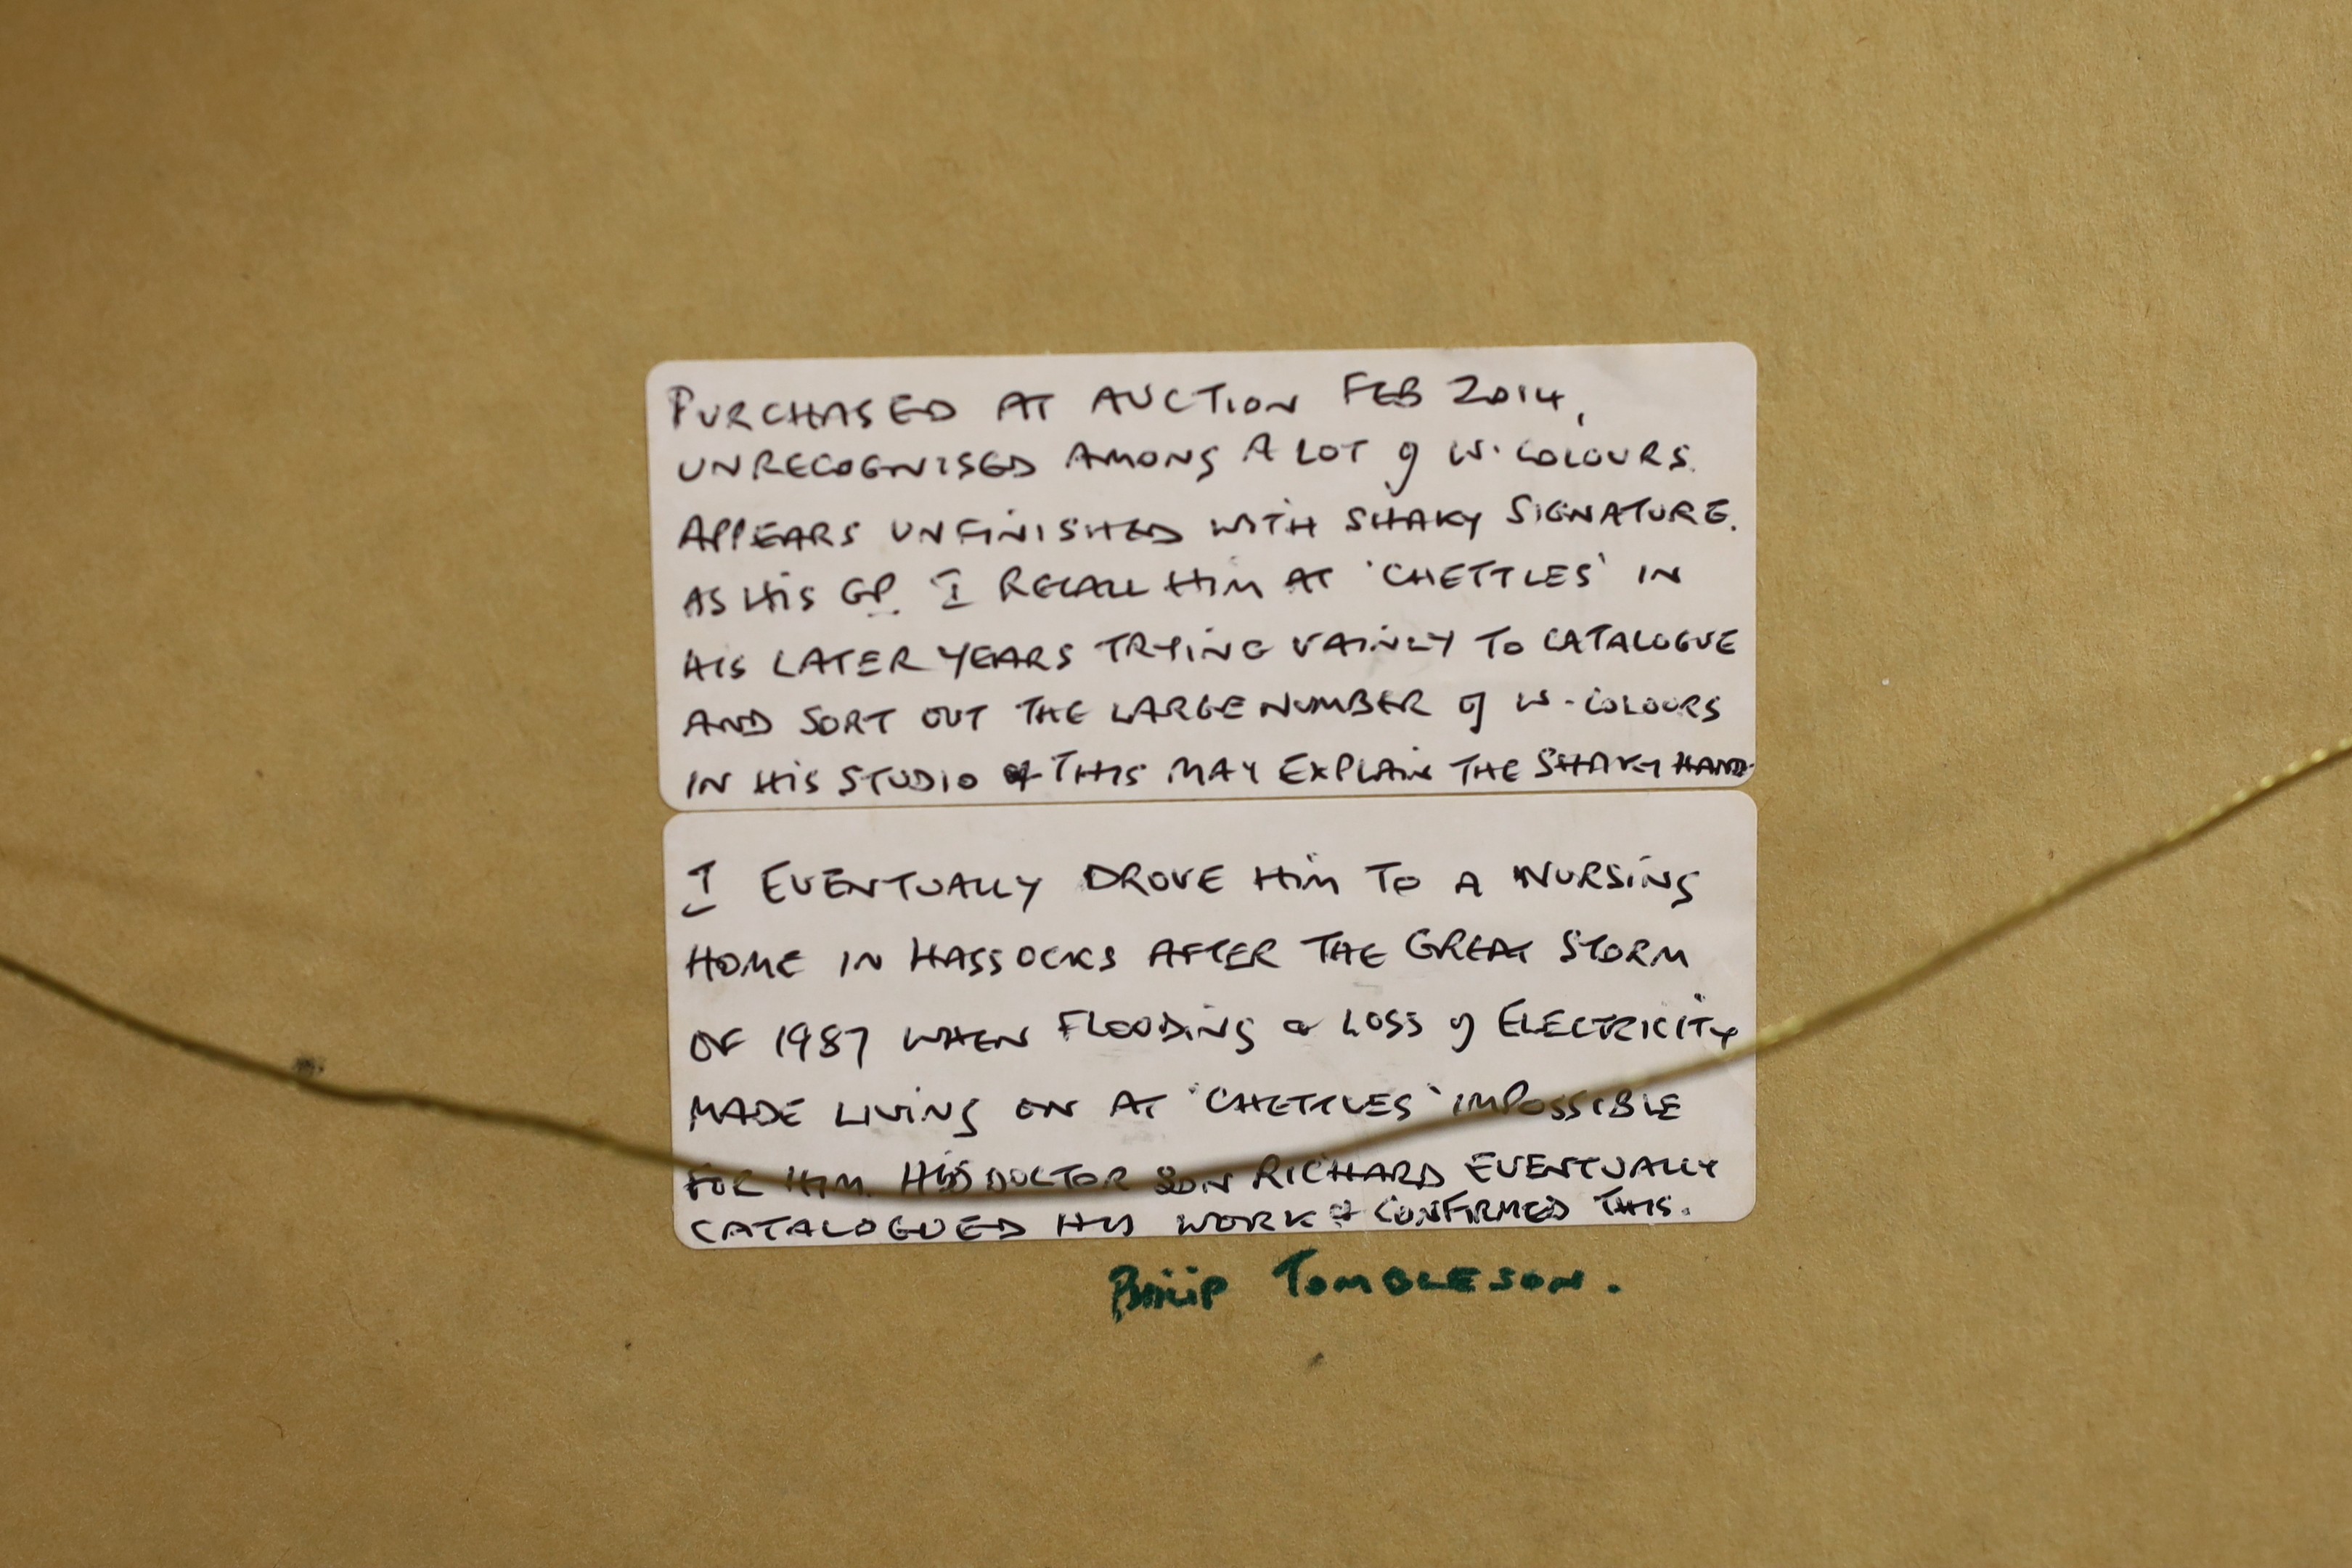 PURCHASED AT AUCTION FEB 2014,
UNRECOGNISED AMONG A LOT of W. COLOURS.
APPEARS UNFINISHED WITH SHAKY SIGNATURE.
AS HIS GP. I RECALL HIM AT 'CHETTLES' IN
HIS LATER YEARS TRYING VAINLY TO CATALOGUE
AND SORT OUT THE LARGE NUMBER of W-COLOURS
IN HIS STUDIO & THIS MAY EXPLAIN THE SHAKY HAND.
I EVENTUALLY DROVE HIM TO A NURSING
HOME IN HASSOCKS AFTER THE GREAT STORM
OF 1987 WHEN FLOODING & LOSS of ELECTRICITY
MADE LIVING ON AT 'CHETTLES' IMPOSSIBLE
FOR HIM. HIS DOCTOR SON RICHARD EVENTUALLY
CATALOGUED HIS WORK & CONFIRMED THIS.
Philip TOMBLESON.